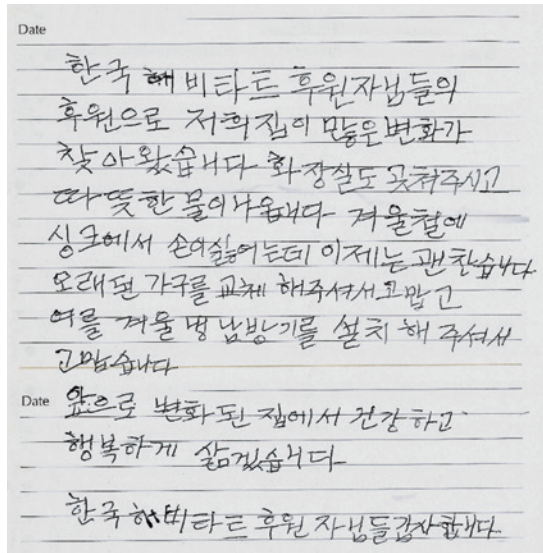 Date
한국 해비타트 후원자님들의
후원으로 저희집이 많은변화가
찾아왔습니다 화장실도 곳쳐주시고
따뜻한 물이나옵니다 겨울철에
싱크에서 손이싫어는데 이제는 괜찬습니다
오래된 가구를 교체 해주셔서고맙고
여름 겨울 냉남방기를 설치 해 주셔서
고맙습니다
Date 앞으로 변화된 집에서 건강하고
행복하게 삶겠습니다
한국 해비타트 후원 자님들감사합니다